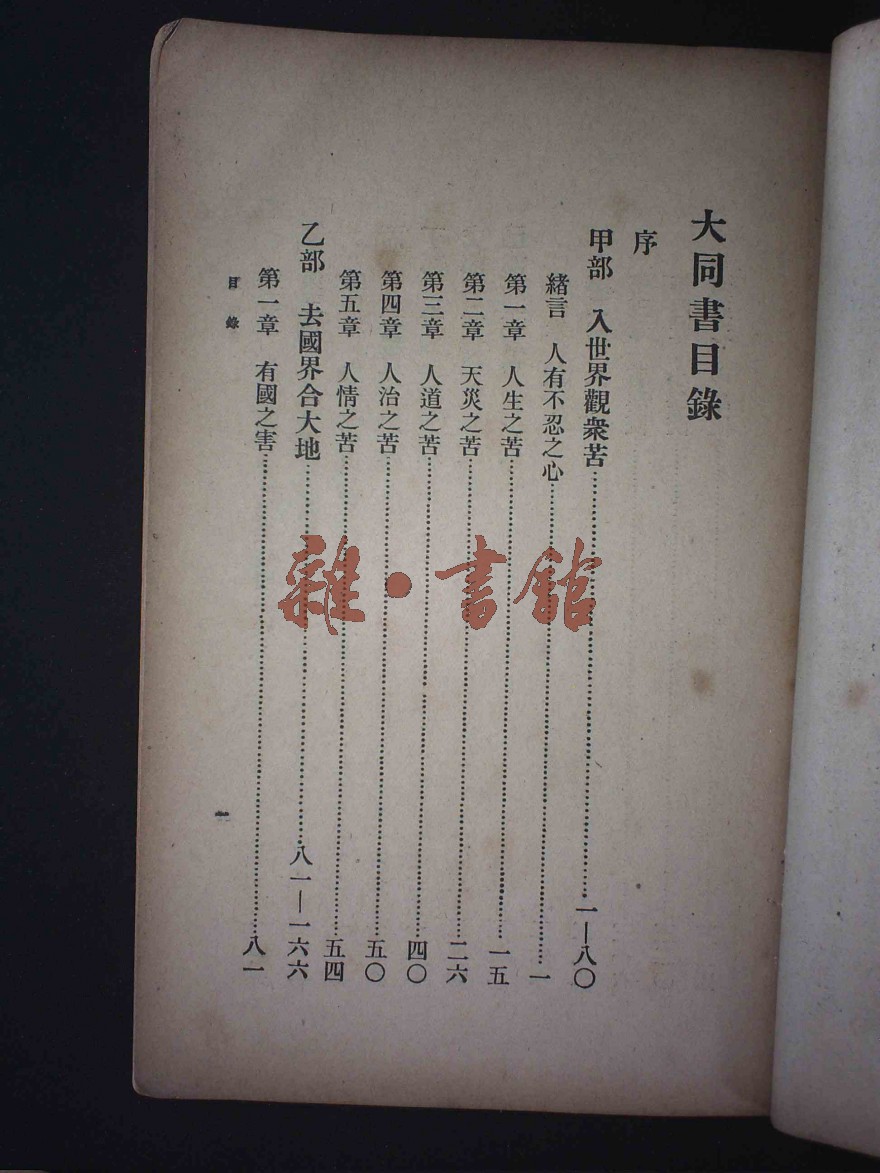 大同書目錄
序
甲部　入世界觀衆苦……一—八〇
緒言　人有不忍之心……一
第一章　人生之苦……一五
第二章　天災之苦……二六
第三章　人道之苦……四〇
第四章　人治之苦……五〇
第五章　人情之苦……五四
乙部　去國界合大地……八一—一六六
第一章　有國之害……八一
目錄
雜·書館